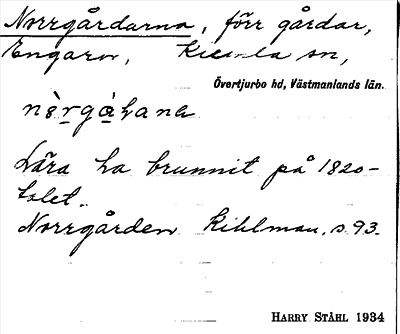 Norrgårdarna, förr gårdar,
Engaron, Kumla sn,
Övertjurbo hd, Västmanlands län.
Lära ha brunnit på 1820-
talet.
Norrgården Kihlman. s. 93.
HARRY STÅHL 1934